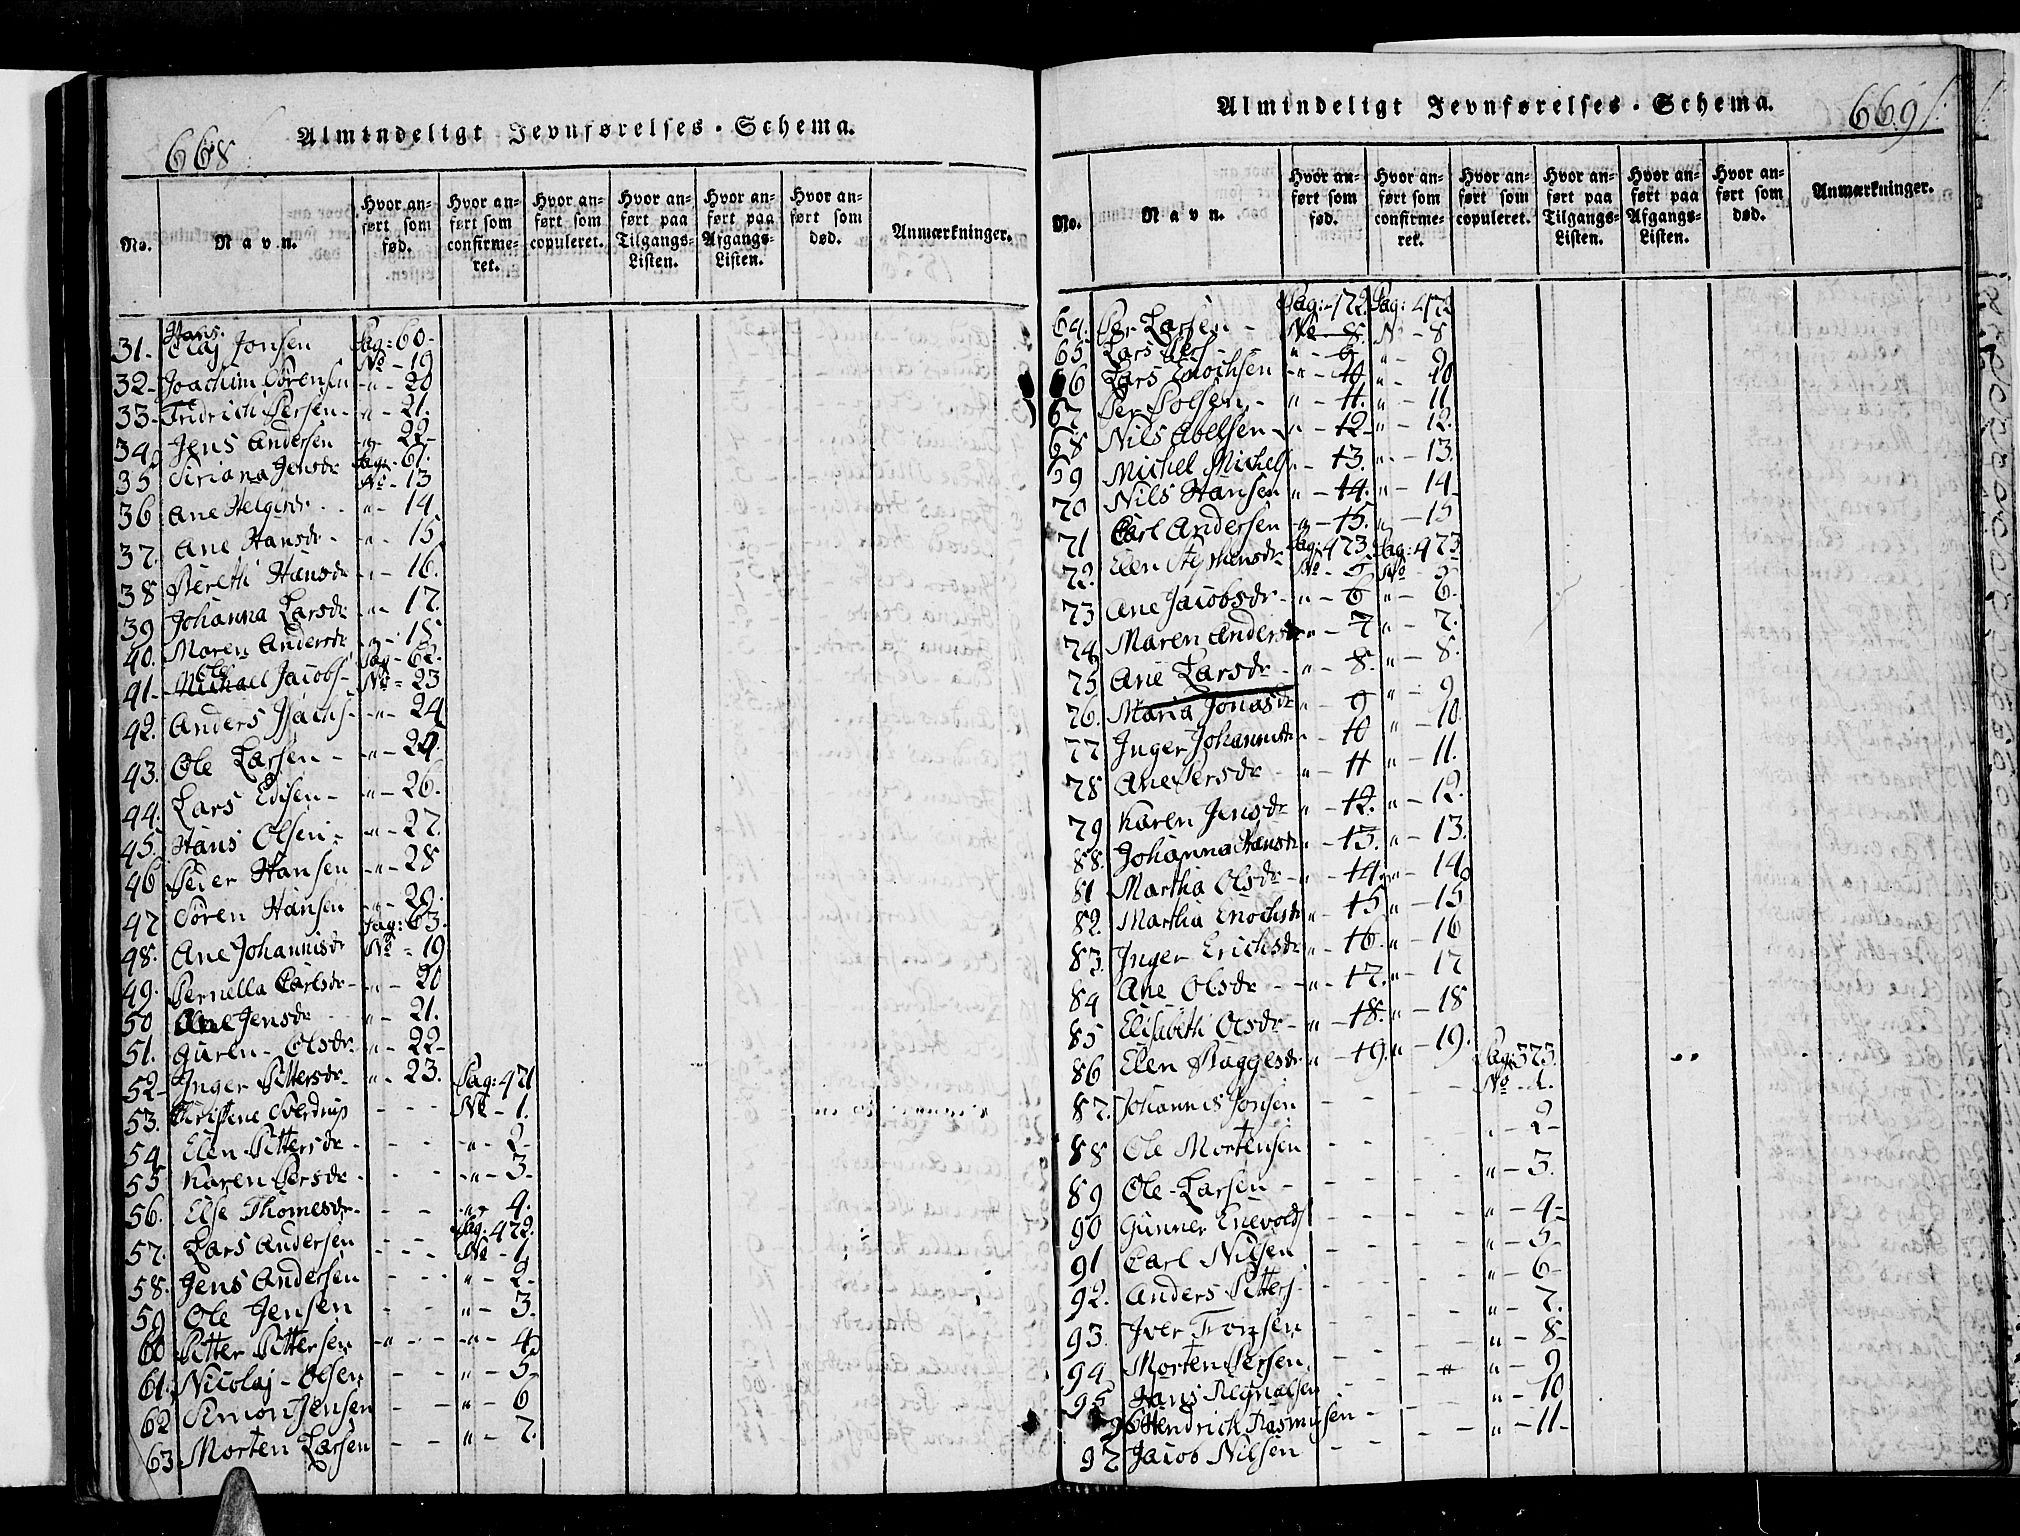 668
Almindeligt Jevnførelses-Schema.
No. Navn. Hvor anført som fød. Hvor anført som confirmeret. Hvor anført som copuleret. Hvor anført paa Tilgangs-Listen. Hvor anført paa Afgangs-Listen. Hvor anført som død. Anmærkninger.
Hans
31. Olaj Jonsen Pag: 60.
No - 19
32 - Joachim Sörensen - " - 20
33 - Fridrich Persen - " - 21.
34 Jens Andersen - " - 22 -
Pag - 61.
35 Siriana Jensdr No - 13
36 Ane Helgesdr - " - 14
37. Ane Hansdr - " - 15
38 Bereth Hansdr - " - 16.
39 Johanna Larsdr - " - 17.
40. Maren Andersdr - " - 18
Ole Pag - 62.
41 - Michael Jacobs - No - 23
42. Anders Isachs - " - 24
43. Ole Larsen - " - 24.
44. Lars Edisen - " - 26.
45. Hans Olsen - " - 27.
46 Peder Hansen - " - 28
47 Sören Hansen - " - 29.
Pag: 63.
48. Ane Johannisdr No - 19
49. Pernella Carlsdr - " - 20
50 Ane Jensdr " - 21.
51. Guren - Olsdr " - 22 -
52 - Inger Pittersdr - " - 23. Pag: 471
53. Christene Sverdrup - - - No - 1.
54 Elen Pittersdr - - - - " - 2 -
55 Karen Persdr - - - - " - 3 -
56. Else Thomesdr - - - - " - 4.
Pag: 472.
57. Lars Andersen - - - No - 1.
58. Jens Andersen - - - " - 2 -
59 Ole Jensen - - " - 3.
60 Pitter Pittersen - " - - - " - 4
61. Nicolaj - Olsen - - " - 5 -
62 Simon Jensen - - " - 6
63 Morten Larsen - - " - 7.
669
Almindeligt Jevnførelses-Schema.
No. Navn. Hvor anført som fød. Hvor anført som confirmeret. Hvor anført som copuleret. Hvor anført paa Tilgangs-Listen. Hvor anført paa Afgangs-Listen. Hvor anført som død. Anmærkninger.
Pag: 472. Pag: 472
64. Per Larsen - No - 8. No - 8
65 Lars Pers - " - 9 " - 9
66 Lars Enochsen - " - 10 " - 10
67 Per Polsen - " - 11. " - 11
68 Nils Abelsen - " - 12 - " - 12.
69 Michel Michels " - 13. " - 13.
70 Nils Hansen " - 14. " - 14
71 Carl Andersen - " - 15. " - 15
Pag: 473. Pag: 473
72. Elen Stephensdr No - 5 No - 5
73 Ane Jacobsdr - " - 6 " - 6.
74 Maren Andersdr " - 7 " - 7.
75 Ane Larsdr - " - 8. " - 8.
76. Maria Jonasdr " - 9 " - 9
77 Inger Johannisdr " - 10 " - 10.
78 Ane Persdr " - 11 " - 11.
79 Karen Jensdr " - 12. " - 12.
88. Johanna Hansdr " - 13. " - 13.
81 Martha Olsdr - " - 14 " - 14
82. Martha Enochsdr " - 15 " - 15
83. Inger Erichsdr " - 16. " - 16
84 Ane Olsdr - " - 17. " - 17
85 Elisabeth Olsdr - " - 18. " - 18
86 Elen Baggesdr " - 19. " - 19. Pag: 573.
87. Johannis Jonsen - - - - No - 1.
88 Ole Mortensen - - - - " - 2 -
89 Ole - Larsen - - - - - " - 3.
90 Gunner Enevolds - - - - " - 4 -
91 Carl Nilsen - - - - " - 5 -
92. Anders Pitters - - - - " - 6 -
93. Iver Tronsen - - - - " - 7.
94 Morten Persen. - - - - " - 8 -
95 Hans - - " - 9
96 Hendrich Rasmusen - - - " - 10
97 Jacob Nilsen - - - - " - 11 -